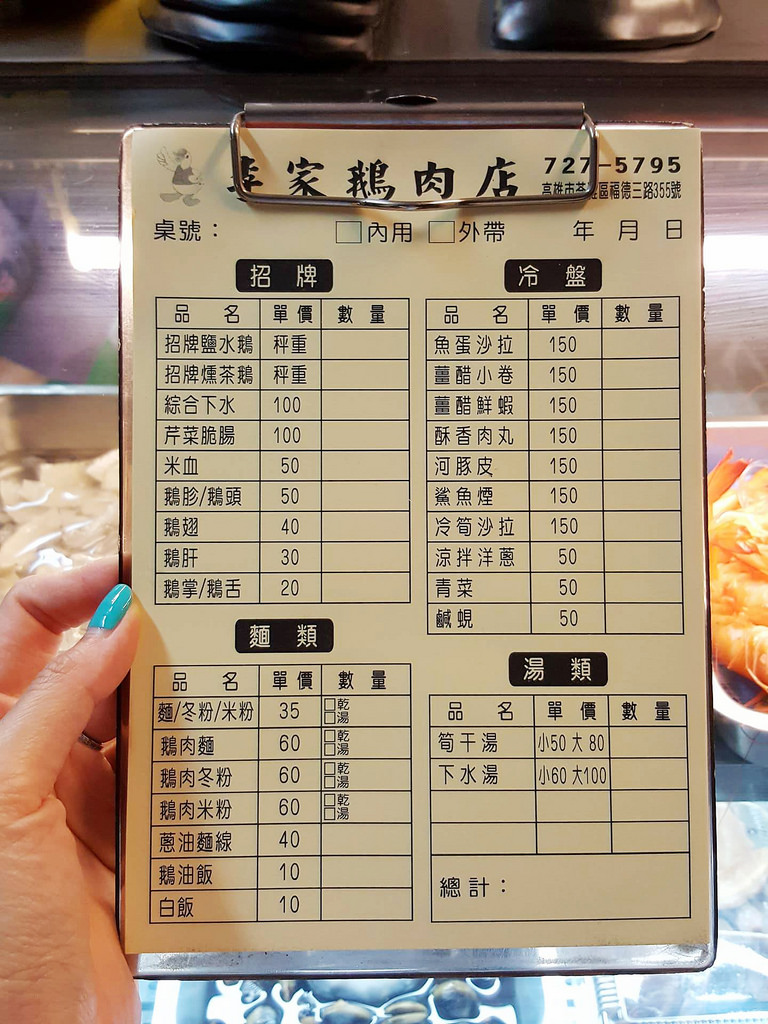 家鵝肉店
727-5795
高雄市苓雅區福德三路355號
桌號：
□內用 □外帶 年 月 日
招牌
品名 單價 數量
招牌鹽水鵝 秤重
招牌燻茶鵝 秤重
綜合下水 100
芹菜脆腸 100
米血 50
鵝胗/鵝頭 50
鵝翅 40
鵝肝 30
鵝掌/鵝舌 20
麵類
品名 單價 數量
麵/冬粉/米粉 35 □乾 □湯
鵝肉麵 60 □乾 □湯
鵝肉冬粉 60 □乾 □湯
鵝肉米粉 60 □乾 □湯
蔥油麵線 40
鵝油飯 10
白飯 10
冷盤
品名 單價 數量
魚蛋沙拉 150
薑醋小卷 150
薑醋鮮蝦 150
酥香肉丸 150
河豚皮 150
鯊魚煙 150
冷筍沙拉 150
涼拌洋蔥 50
青菜 50
鹹蜆 50
湯類
品名 單價 數量
筍干湯 小50 大80
下水湯 小60 大100
總計：